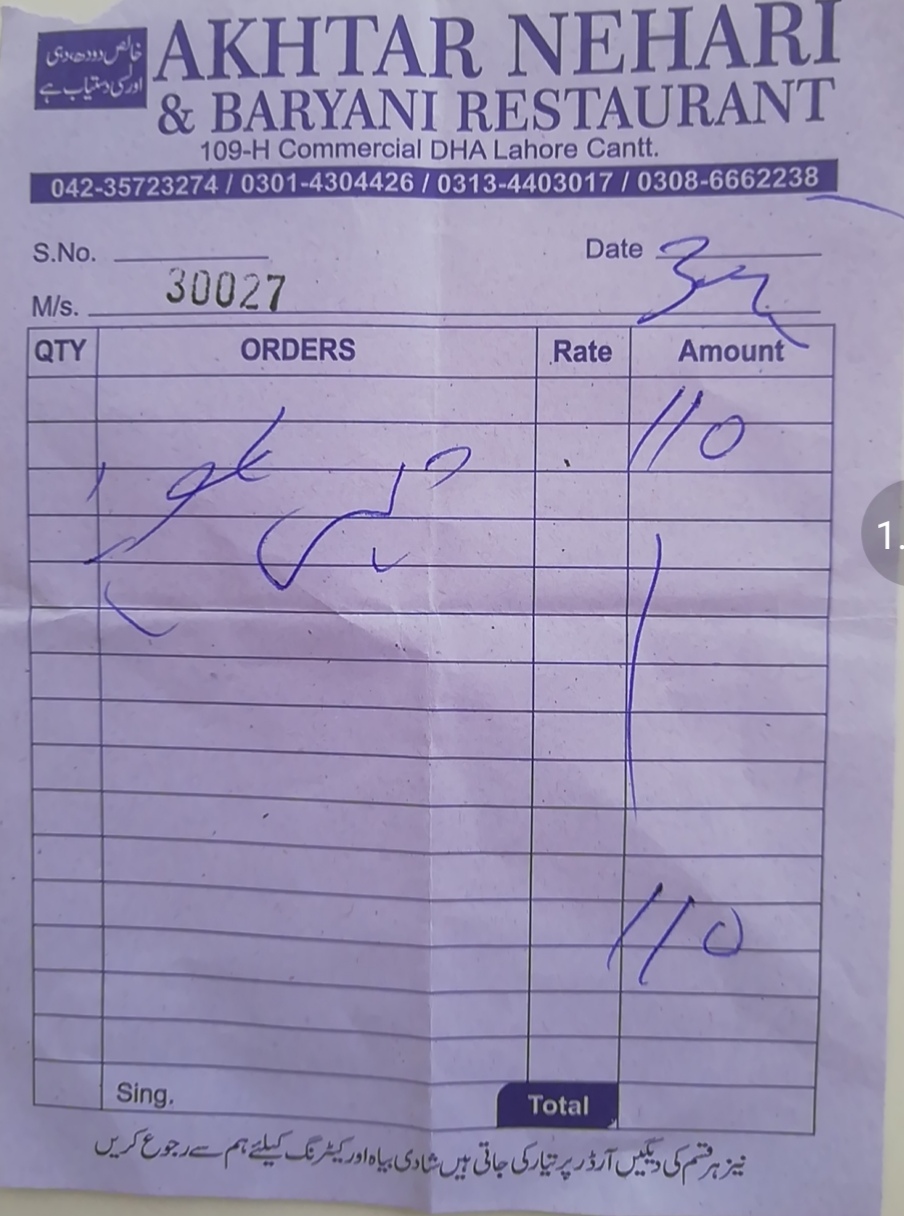 خالص دودھ، دہی
اور لسی دستیاب ہے
AKHTAR NEHARI
& BARYANI RESTAURANT
109-H Commercial DHA Lahore Cantt.
042-35723274 / 0301-4304426 / 0313-4403017 / 0308-6662238
S.No. Date
M/s. 30027
QTY ORDERS Rate Amount
110
110
Sing. Total
نیز ہر قسم کی دیگیں آرڈر پر تیار کی جاتی ہیں شادی بیاہ اور کیٹرنگ کیلئے ہم سے رجوع کریں
1.